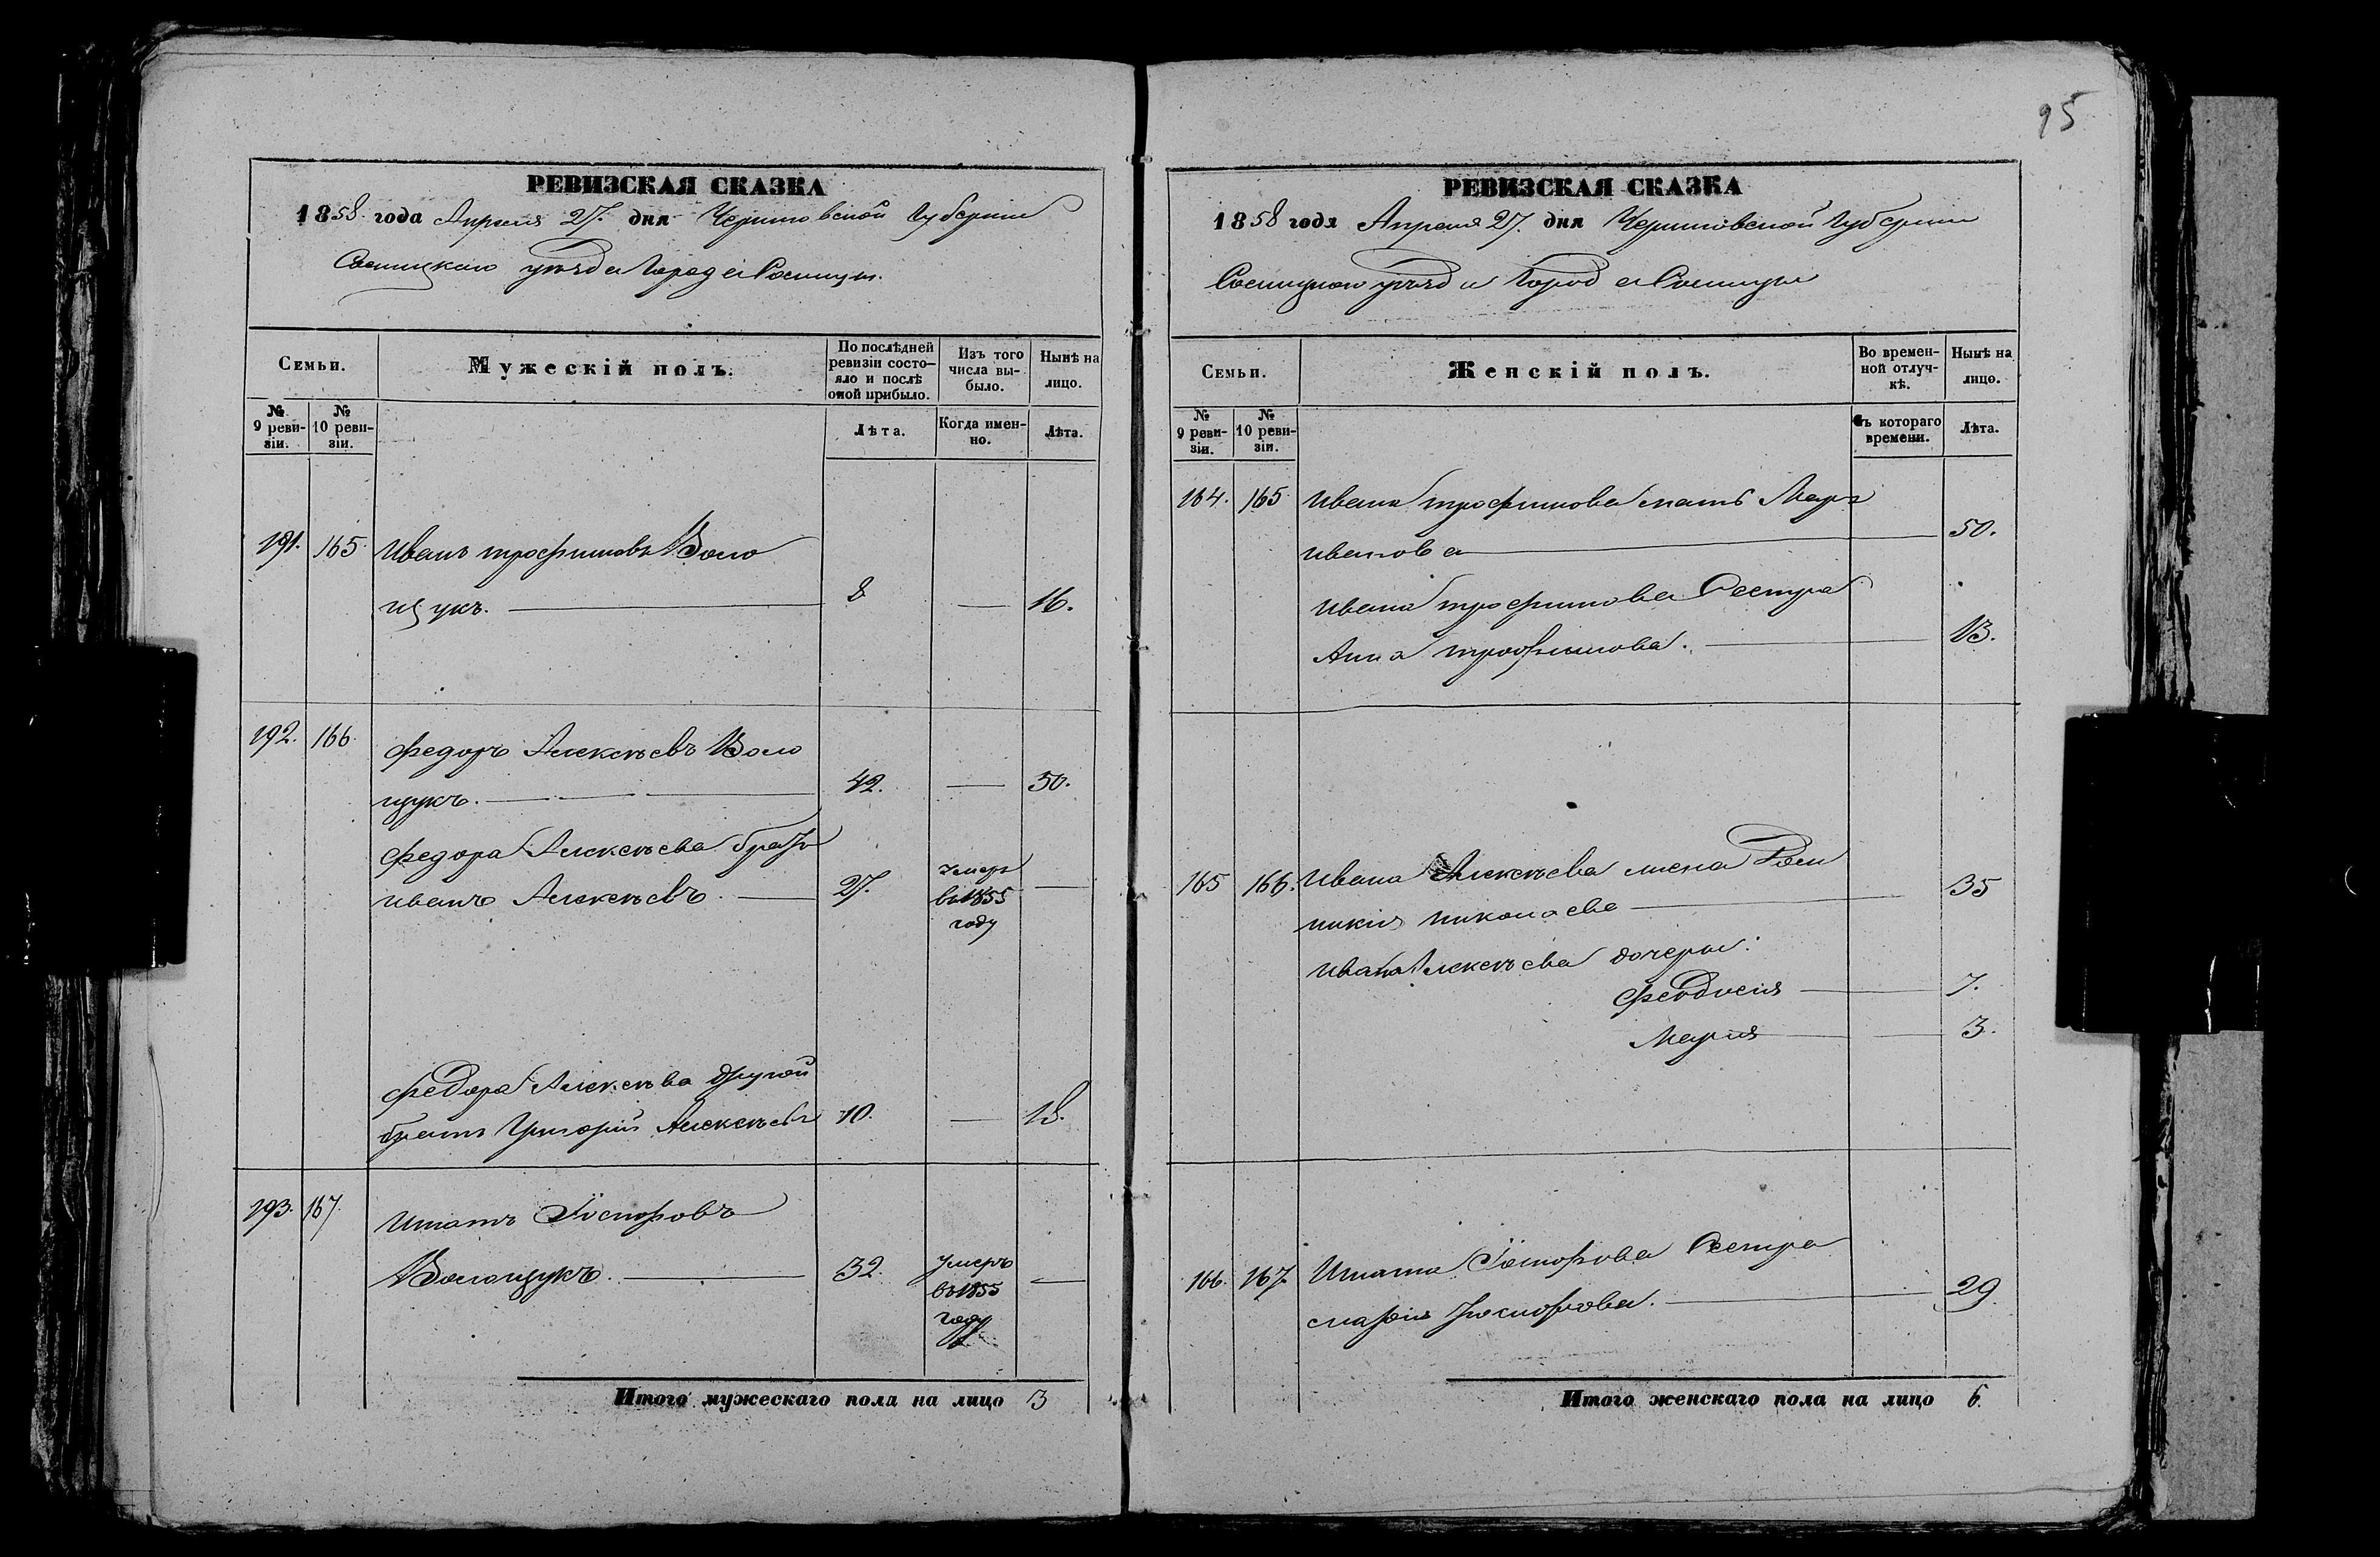 95
РЕВИЗСКАЯ СКАЗКА
1858 года Апреля 27. дня Черниговской Губернии
Сосницкаго уѣзда Города Сосницы.
Семьи.
Мужескій полъ.
По послѣдней ревизіи состояло и послѣ оной прибыло.
Изъ того числа выбыло.
Нынѣ на лицо.
№ 9 ревизіи.
№ 10 ревизіи.
Лѣта.
Когда именно.
Лѣта.
191. 165 Иванъ трофимовъ Воло
щукъ. 8 16.
192. 166. федоръ Алексѣевъ Воло
щукъ. 42. 50.
федора Алексѣева братъ
иванъ Алексѣевъ 27. Умеръ
въ 1855
году
федора Алексѣва другой
братъ Григорій Алексѣевъ 10. 18.
193. 167. Игнатъ
Волощукъ. 32. Умеръ
въ 1855
году
Итого мужескаго пола на лицо 3
РЕВИЗСКАЯ СКАЗКА
1858 года Апреля 27. дня Черниговской Губернии
Сосницкаго уѣзда Города Сосницы
Семьи.
Женскій полъ.
Во временной отлучкѣ.
Нынѣ на лицо.
№ 9 ревизіи.
№ 10 ревизіи.
Съ котораго времени.
Лѣта.
164. 165 Ивана трофимова мать
иванова 50.
Ивана трофимова Сестра
Анна трофимова. 13.
165 166. Ивана Алексѣева жена
николаева 35
Ивана Алексѣева дочери:
Феодосия 7.
Мария 3.
166. 167. Игната Сестра
29.
Итого женскаго пола на лицо 6.